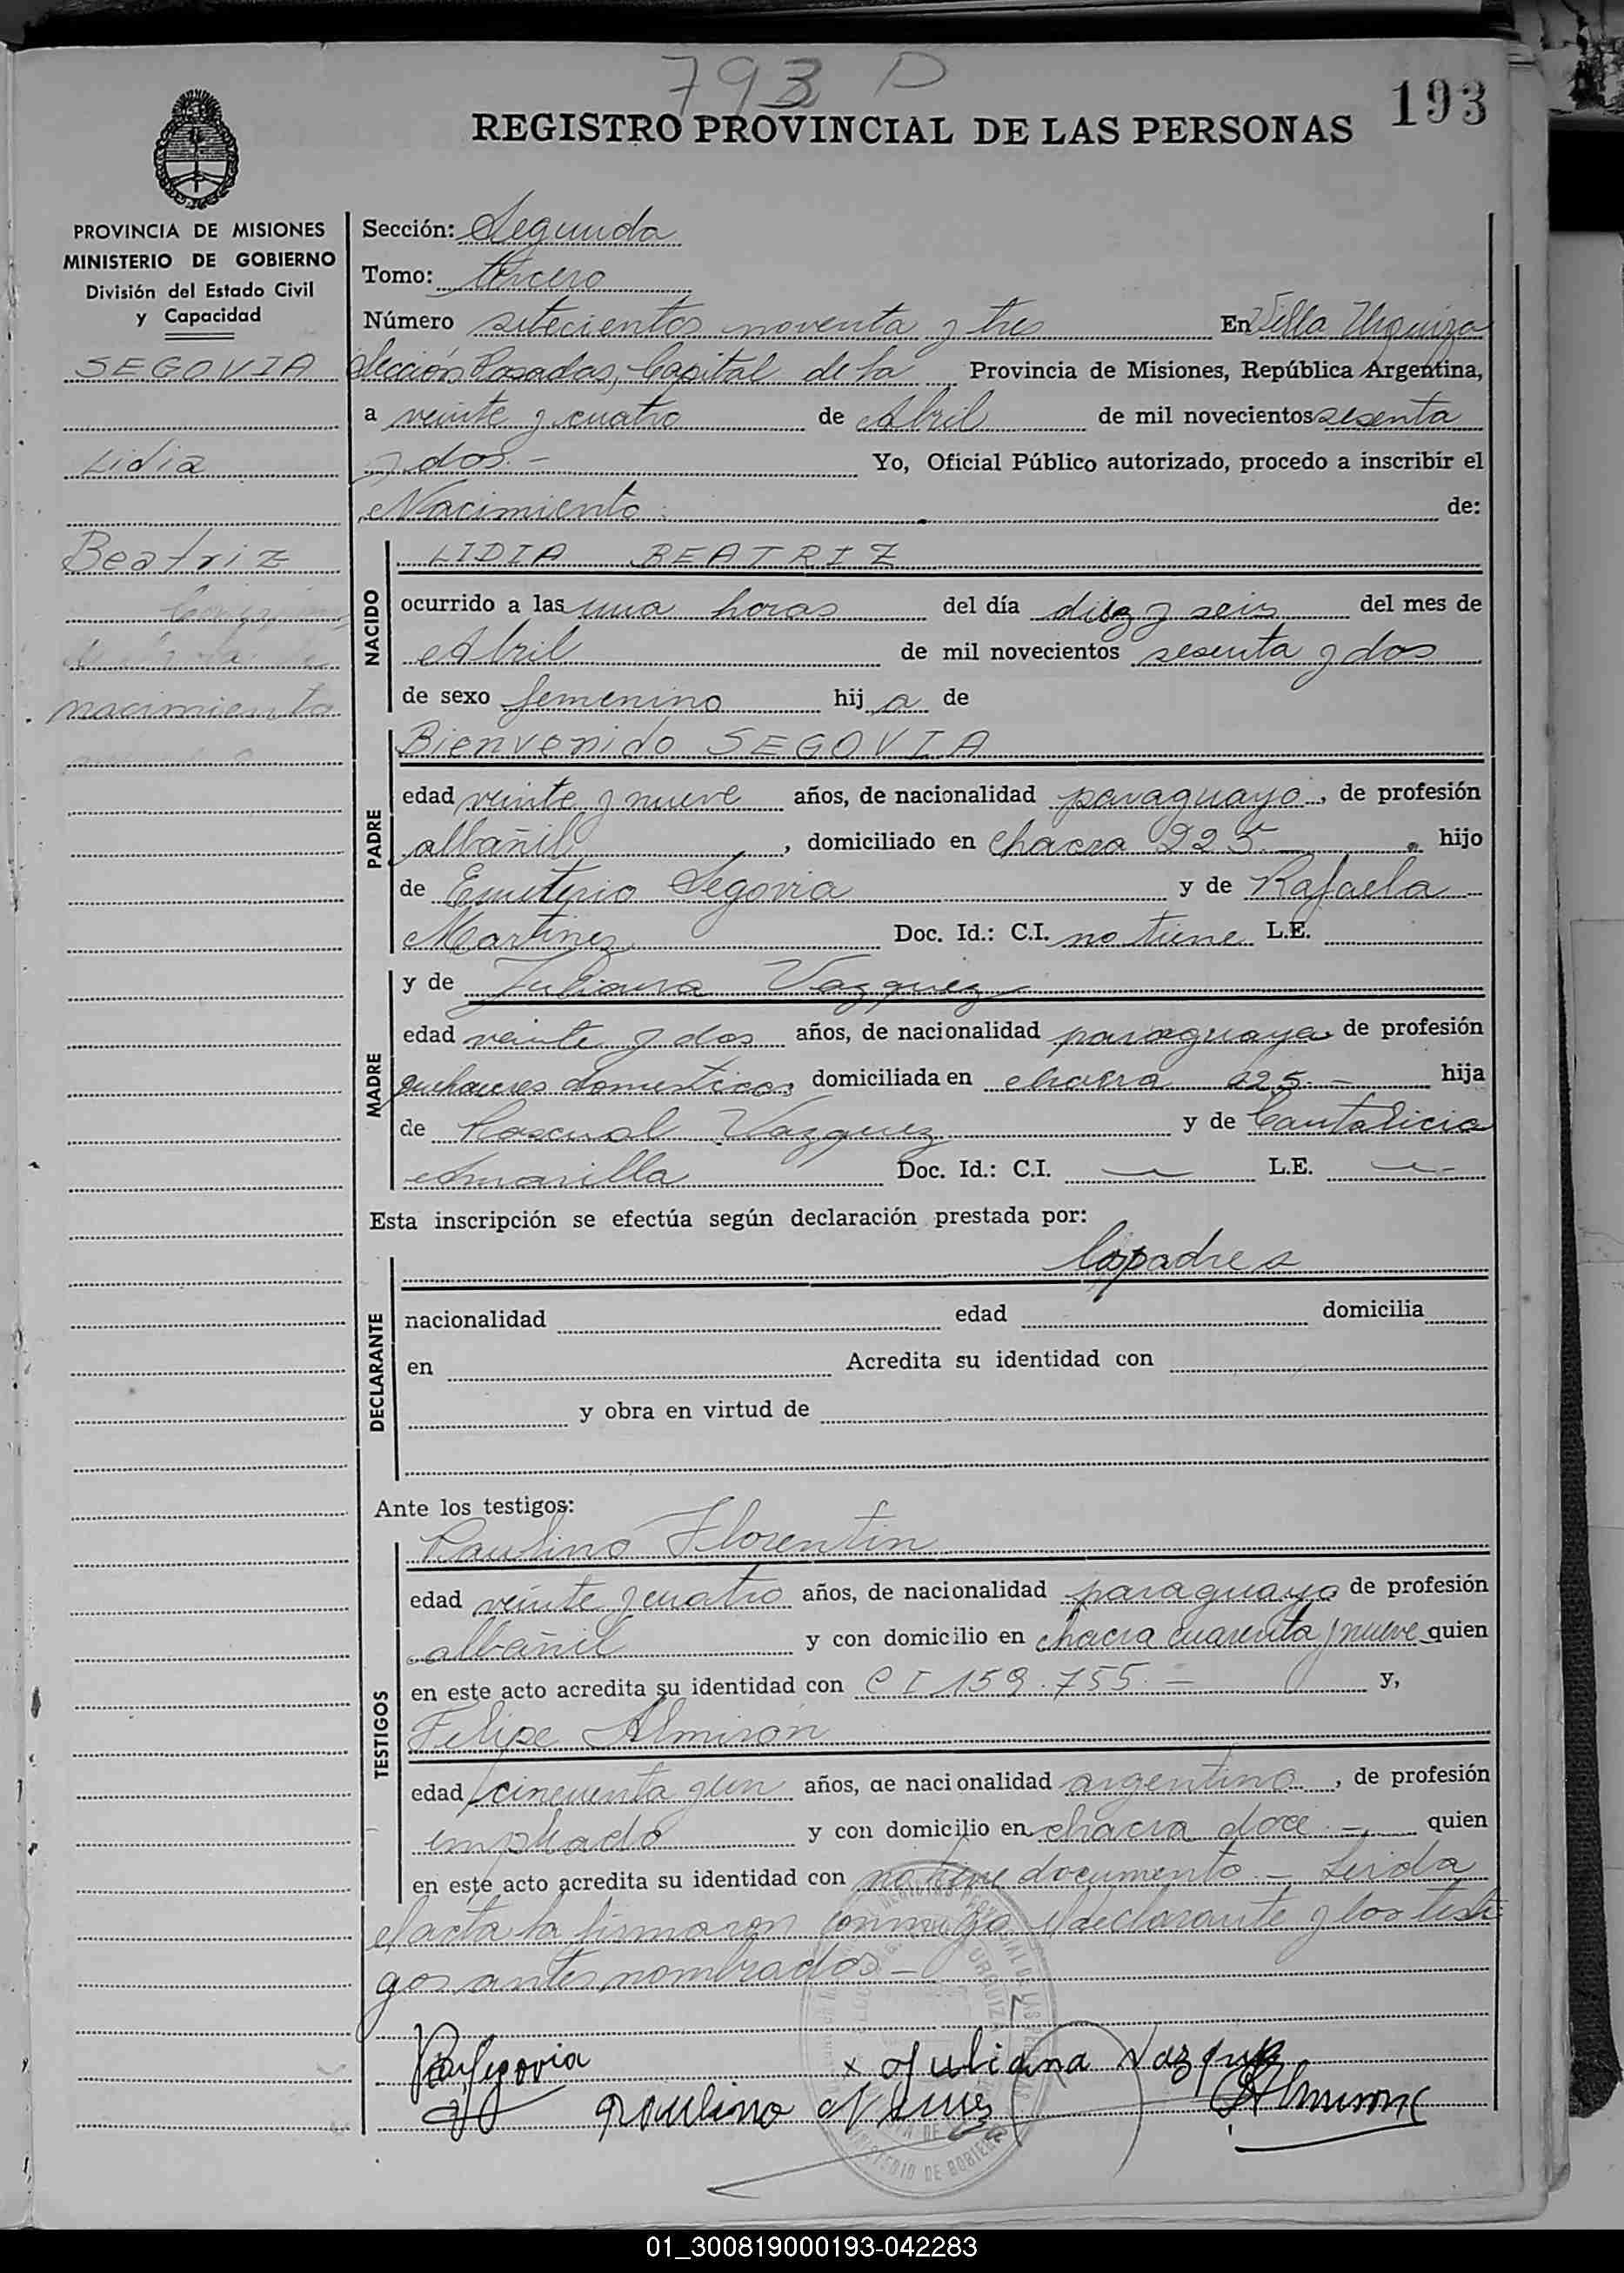 793 P
193
REGISTRO PROVINCIAL DE LAS PERSONAS
PROVINCIA DE MISIONES
MINISTERIO DE GOBIERNO
División del Estado Civil
y Capacidad
SEGOVIA
Lidia
Beatriz
nacimiento
Sección: Segunda
Tomo: tercero
Número setecientos noventa y tres En Villa Urquiza
Sección Posadas, Capital de la Provincia de Misiones, República Argentina,
a veinte y cuatro de Abril de mil novecientos sesenta
y dos.- Yo, Oficial Público autorizado, procedo a inscribir el
Nacimiento de:
NACIDO
LIDIA BEATRIZ
ocurrido a las una horas del día diez y seis del mes de
Abril de mil novecientos sesenta y dos
de sexo femenino hij a de
PADRE
Bienvenido SEGOVIA
edad veinte y nueve años, de nacionalidad paraguayo, de profesión
albañil, domiciliado en chacra 225 hijo
de Emeterio Segovia y de Rafaela
Martinez Doc. Id.: C.I. no tiene L.E.
MADRE
y de Juliana Vazquez
edad veinte y dos años, de nacionalidad paraguaya de profesión
quehaceres domesticos domiciliada en chacra 225.- hija
de Pascual Vazquez y de Cantalicia
Amarilla Doc. Id.: C.I. L.E.
Esta inscripción se efectúa según declaración prestada por:
DECLARANTE
los padres
nacionalidad edad domicilia
en Acredita su identidad con
y obra en virtud de
Ante los testigos:
TESTIGOS
Paulino Florentin
edad veinte y cuatro años, de nacionalidad paraguayo de profesión
albañil y con domicilio en chacra cuarenta y nueve quien
en este acto acredita su identidad con C I 159.755.- y,
Felipe Almirón
edad cincuenta y un años, de nacionalidad argentino, de profesión
empleado y con domicilio en chacra doce.- quien
en este acto acredita su identidad con no tiene documento.- Leida
el acta la firmaron conmigo el declarante y los testi
gos antes nombrados.-
Segovia
x Juliana Vazquez
Paulino
Almiron
01_300819000193-042283